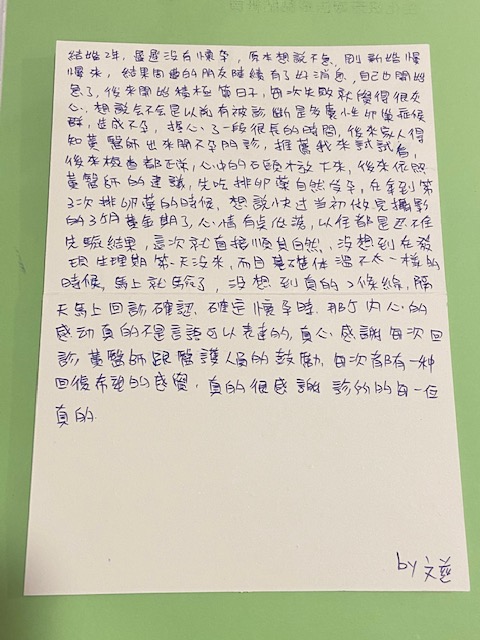 結婚2年，遲遲沒有懷孕，原本想說不急，剛新婚慢
慢來，結果周遭的朋友陸續有了好消息，自己也開始
急了，後來開始積極算日子，每次失敗就覺得很灰
心，想說會不會是以前有被診斷是多囊性卵巢症候
群，造成不孕，擔心了一段很長的時間，後來家人得
知黃醫師出來開不孕門診，推薦我來試試看，
後來檢查都正常，心中的石頭才放下來，後來依照
黃醫師的建議，先吃排卵藥自然受孕，在拿到第
3次排卵藥的時候，想說快過當初做完攝影
的3個月黃金期了，心情有點低落，以往都是忍不住
先驗結果，這次就直接順其自然，沒想到在發
現生理期第一天沒來，而且基礎体溫不太一樣的
時候，馬上就驗了，沒想到真的2條線，隔
天馬上回診確認，確定懷孕時，那個內心的
感动真的不是言語可以表達的，真心感謝每次回
診，黃醫師跟醫護人員的鼓勵，每次都有一种
回復希望的感覺，真的很感謝 診所的每一位
真的
by 文